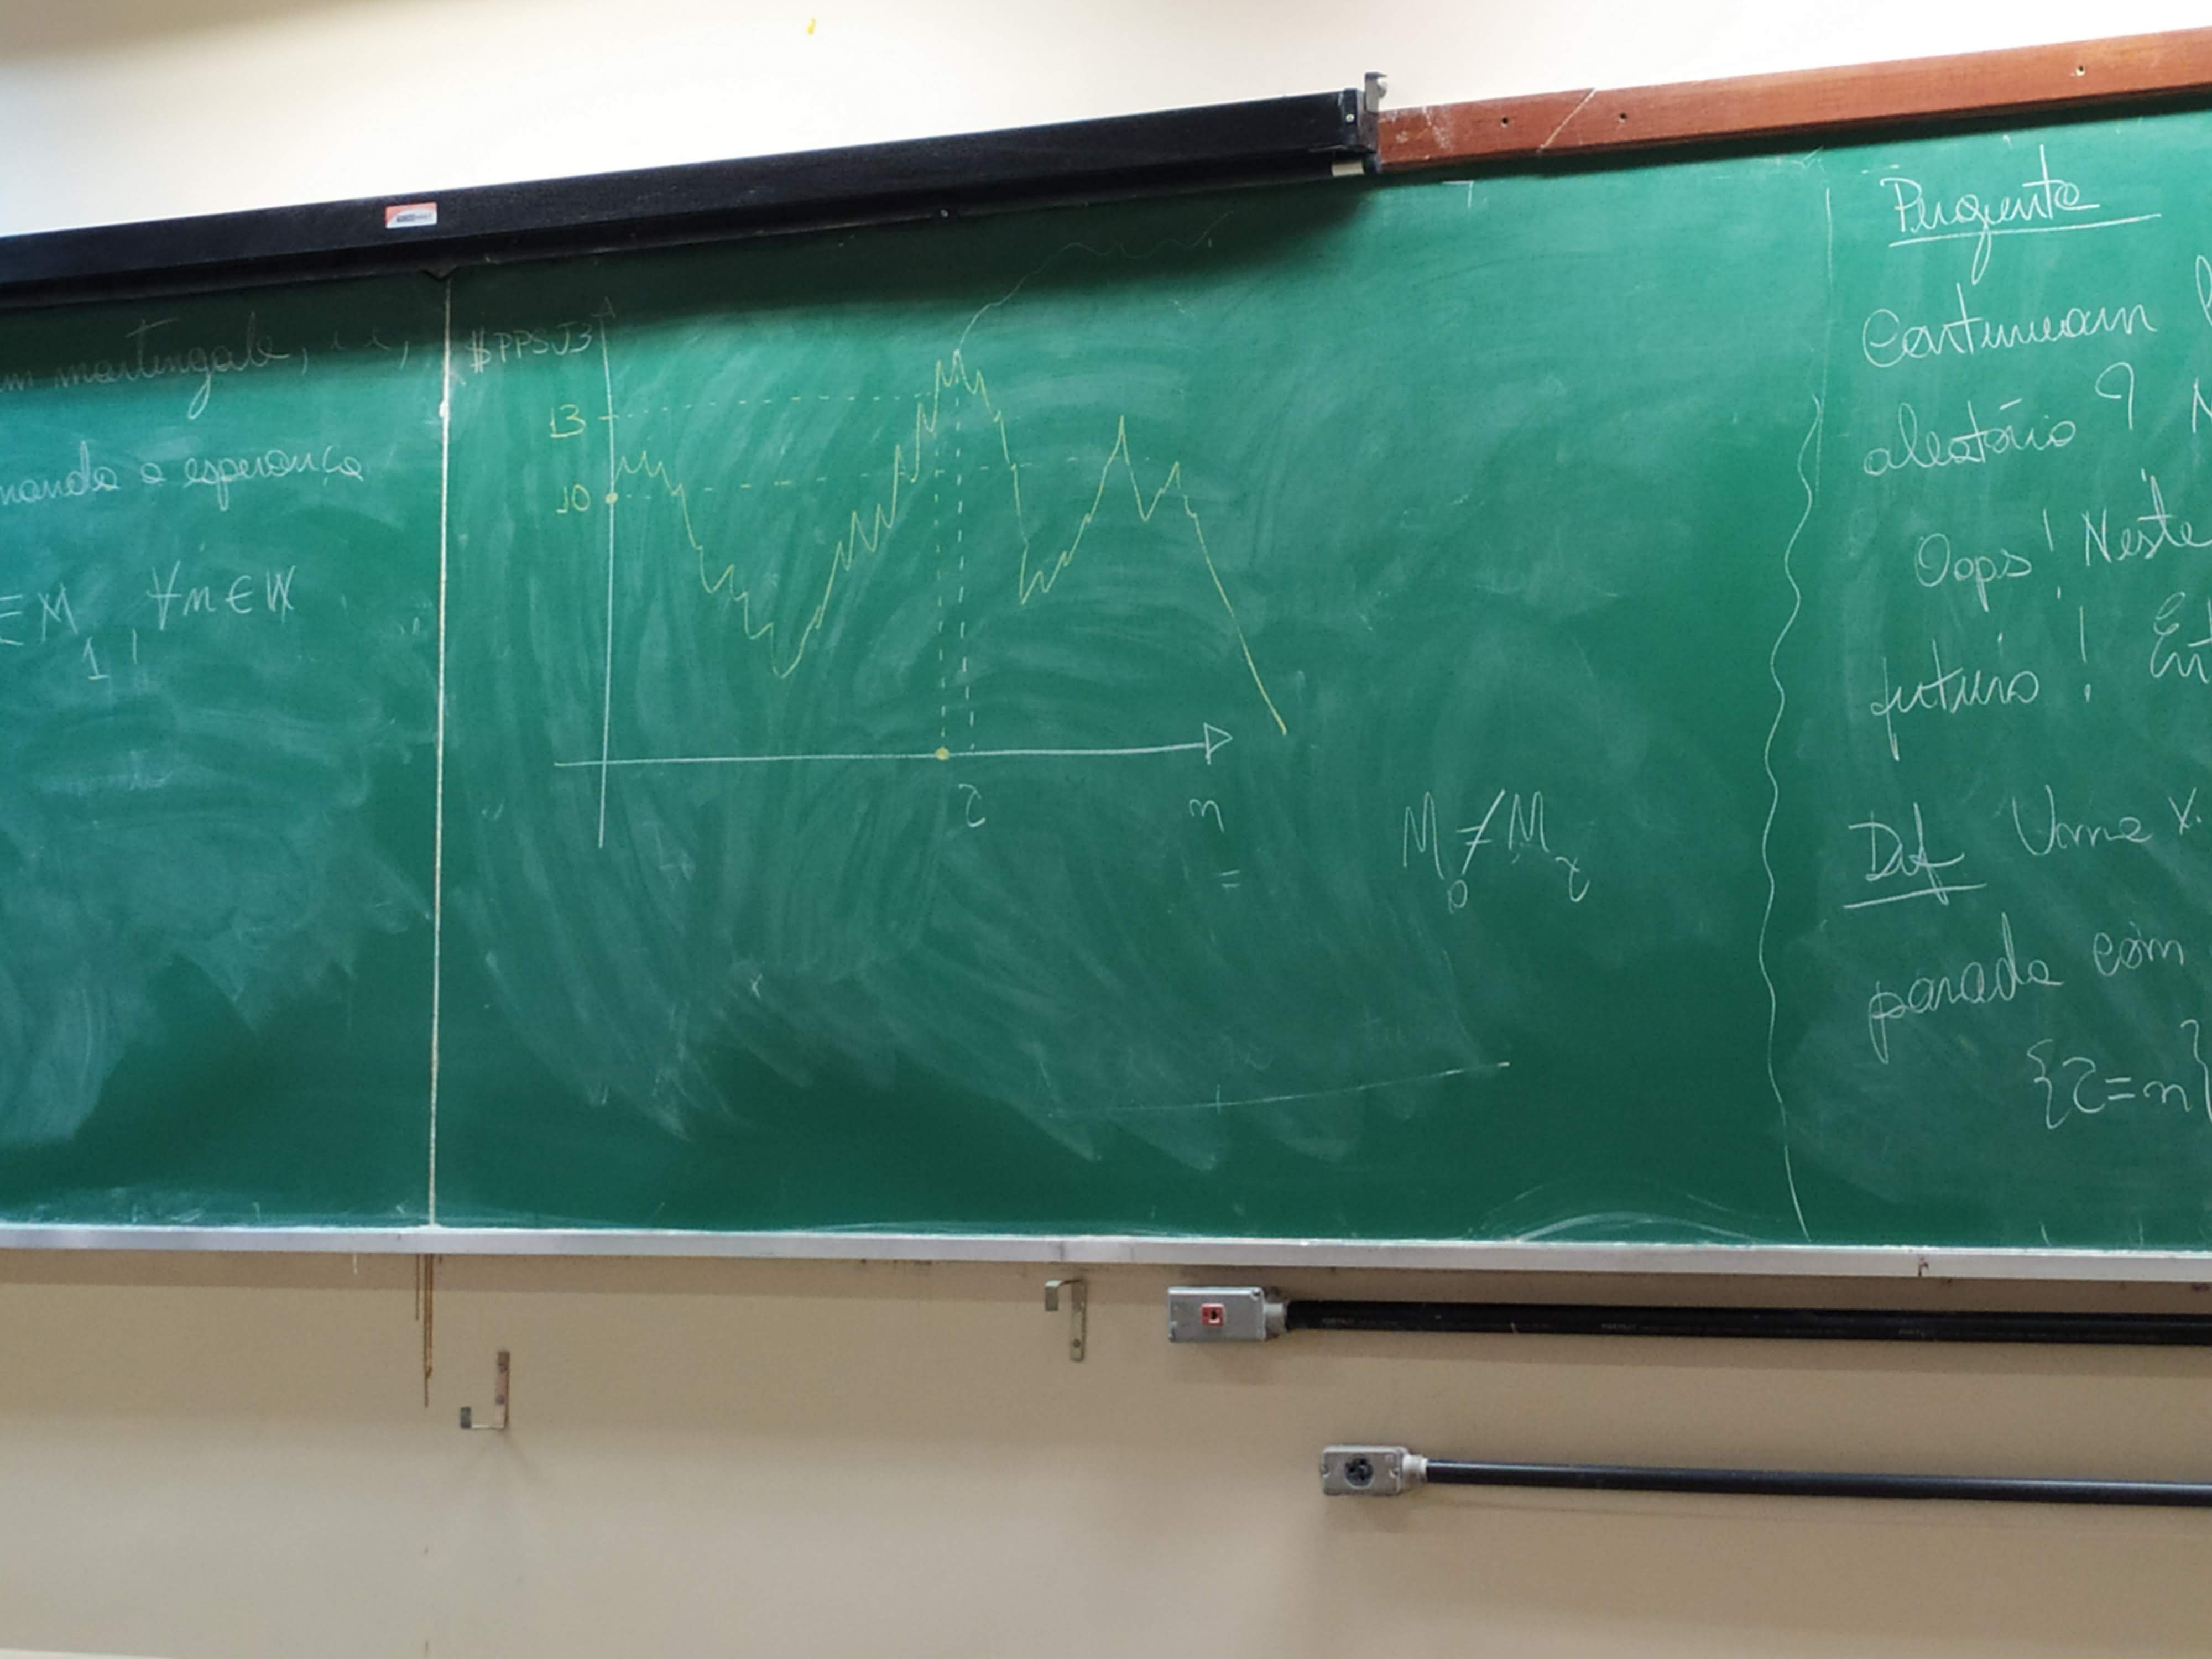 martingale, i.e,
a esperança
EM₁ ∀n∈ℕ
#PPSJ3
13
10
τ
n
=
M₀ ≠ M_τ
Pergunta
Continuam
aleatório?
Oops! Neste
futuro!
Def Uma
parada com
{τ=n}